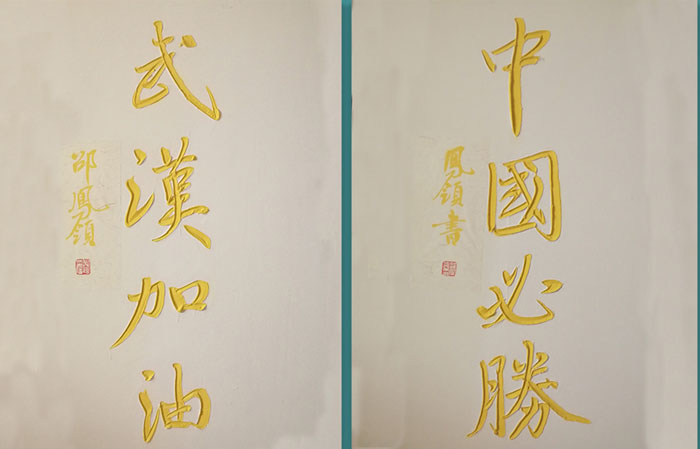 武漢加油
邵鳳領
中國必勝
鳳領書